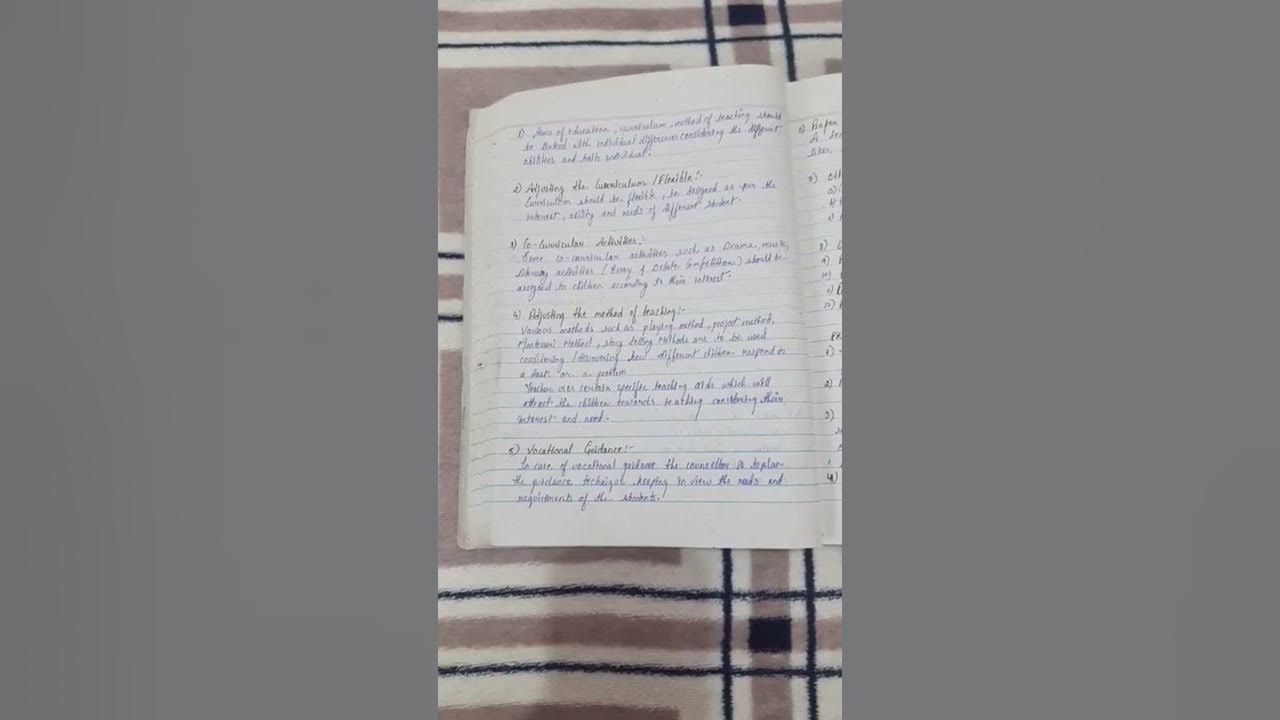 1) Aims of education, curriculum, method of teaching should
be linked with individual differences considering the different
abilities and individual.
2) Adjusting the Curriculum / Flexible:-
Curriculum should be flexible, to designed as per the
interest, ability and needs of different student.
3) Co-Curricular Activities:-
Some co-curricular activities such as Drama, music,
literary activities (Essay & Debate Competition) should be
assigned to children according to their interest.
4) Adjusting the method of teaching:-
Various methods such as playing method, project method,
Montessori Method, story telling Methods are to be used
considering / discovering how different children respond to
a task or a problem.
Teacher uses certain specific teaching aids which will
attract the children towards teaching considering their
interest and need.
5) Vocational Guidance:-
In case of vocational guidance the counsellor is to plan
the guidance technique keeping in view the needs and
requirements of the students.
6) Proper
7)
a)
8)
9)
10)
11)
12)
1)
2)
3)
4)